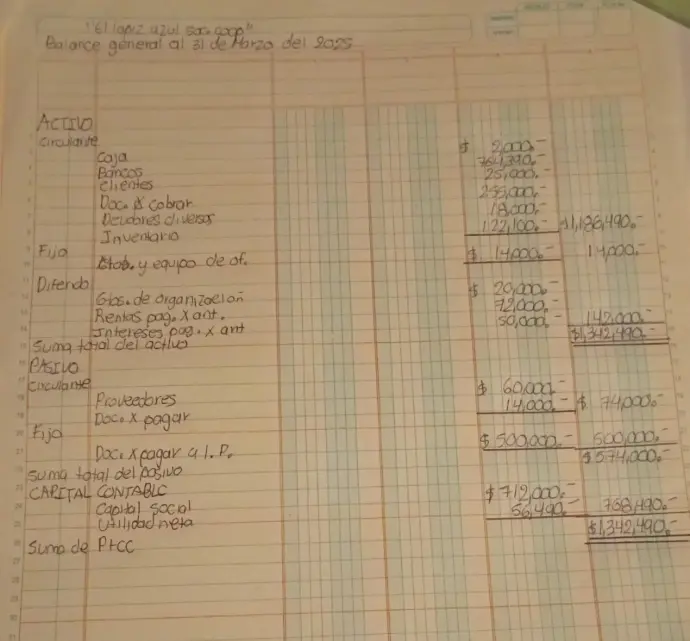 "El lapiz azul soc. coop"
Balance general al 31 de Marzo del 2025
ACTIVO
Circulante
Caja $ 2,000.-
Bancos 764,390.-
Clientes 25,000.-
Doc. X cobrar 255,000.-
Deudores diversos 18,000.-
Inventario 122,100.- $1,186,490.-
Fijo
Mob. y equipo de of. $ 14,000.- 14,000.-
Diferido
Gtos. de organización $ 20,000.-
Rentas pag. X ant. 72,000.-
Intereses pag. x ant 50,000.- 142,000.-
Suma total del activo $1,342,490.-
PASIVO
Circulante
Proveedores $ 60,000.-
Doc. X pagar 14,000.- $ 74,000.-
Fijo
Doc. X pagar a l. P. $ 500,000.- 500,000.-
Suma total del pasivo $574,000.-
CAPITAL CONTABLE
Capital social $712,000.-
Utilidad neta 56,490.- 768,490.-
Suma de P+CC $1,342,490.-